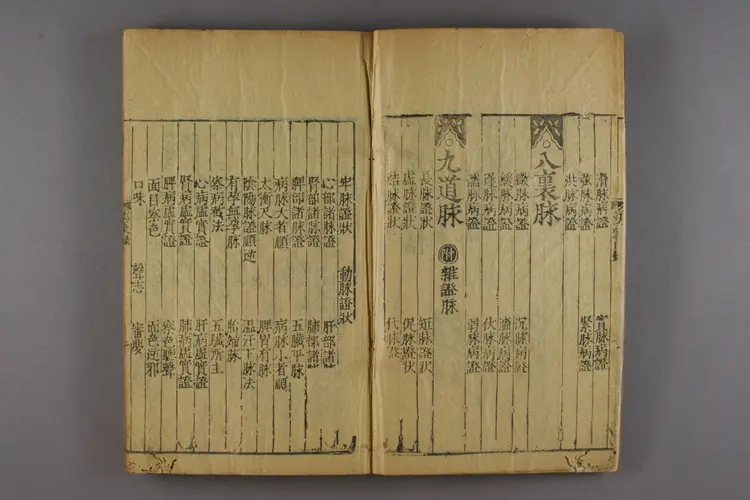 滑脉病證 實脉病證
弦脉病證 緊脉病證
洪脉病證
八裏脉
微脉病證 沉脉病證
緩脉病證 濇脉病證
遲脉病證 伏脉病證
濡脉病證 弱脉病證
九道脉 附 雜證脉
長脉證狀 短脉證狀
虛脉證狀 促脉證狀
結脉證狀 代脉證
牢脉證狀 動脉證狀
心部諸脉證 肝部諸脉
腎部諸脉證 肺部諸脉
脾部諸脉證 五臟平脉
病脉大者顧 病脉小者顧
太衝天脉 脾胃有脉
陰陽脉證顧逆 溫汗下脉法
有孕無孕脉 胎婦脉
察病機法 五臟所主
心病虛實證 肝病虛實證
腎病虛實證 肺病虛實證
脾病虛實證 察色聽聲
面目察色 面色逆邪
口味 聲志 審嬰